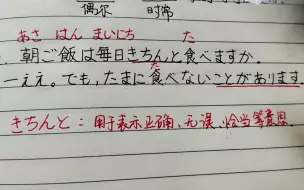 偶尔 时常
あさ はん まいにち た
朝ご飯は毎日きちんと食べますか.
た
一ええ。でも,たまに食べないことがあります
きちんと：用于表示正确、无误、恰当等意思